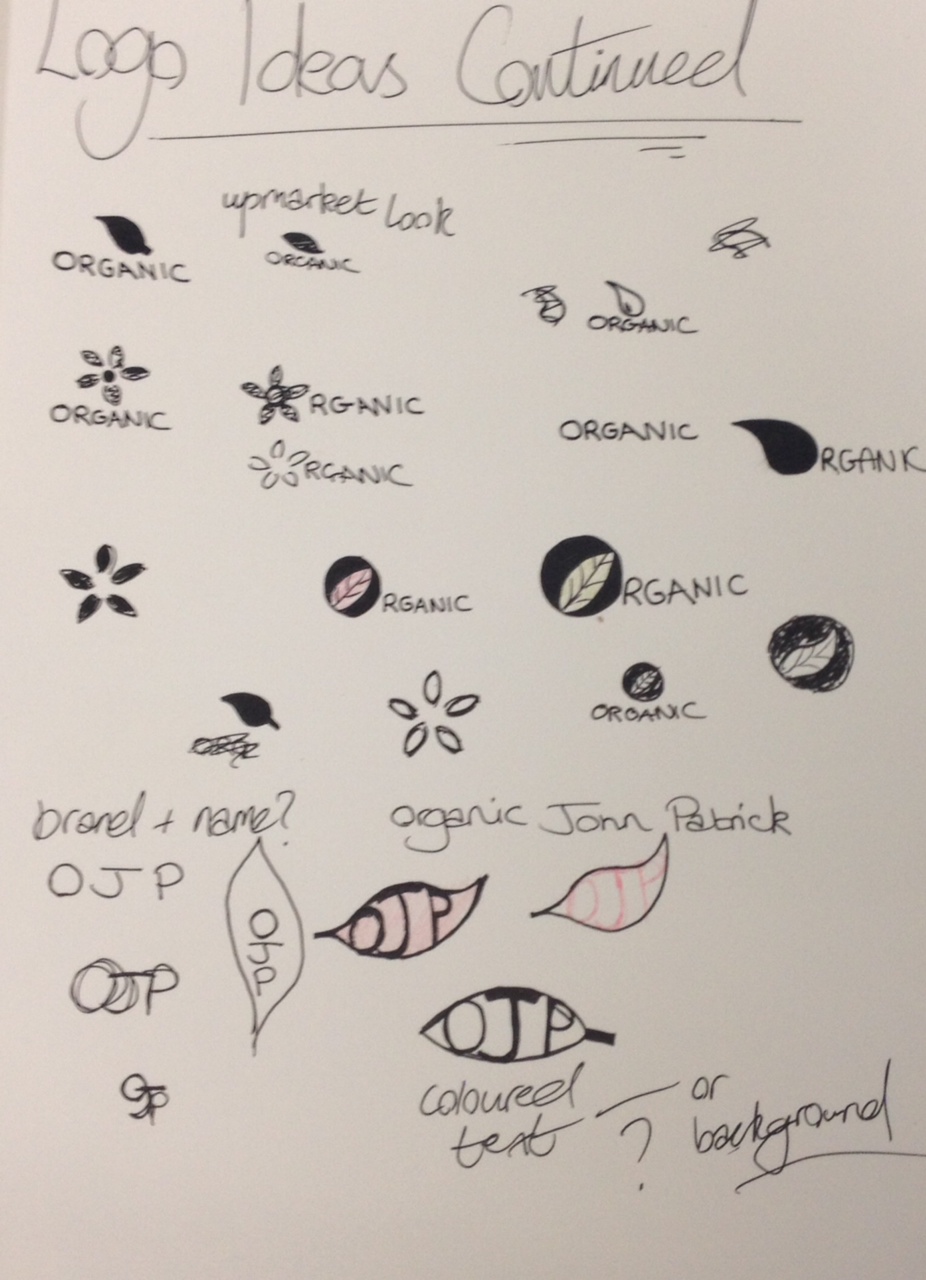 Logo Ideas Continued
upmarket Look
ORGANIC
ORGANIC
ORGANIC
ORGANIC
RGANIC
ORGANIC
RGANIC
RGANIC
RGANIC
RGANIC
ORGANIC
brand + name?
organic John Patrick
OJP
OJP
OJP
OJP
OJP
OJP
OJP
coloured text or background
?